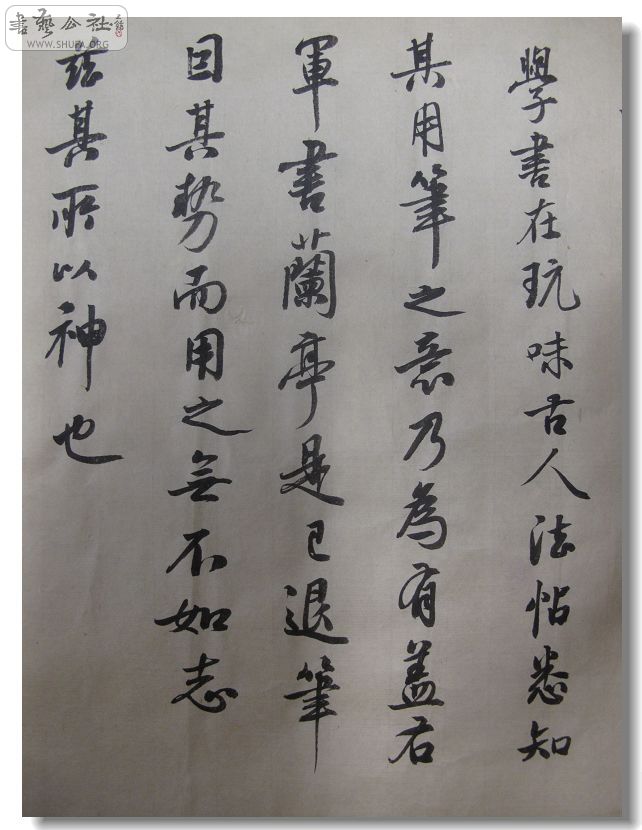 書藝公社
WWW.SHUFA.ORG
學書在玩味古人法帖悉知
其用筆之意乃為有益右
軍書蘭亭是已退筆
因其勢而用之無不如志
茲其所以神也